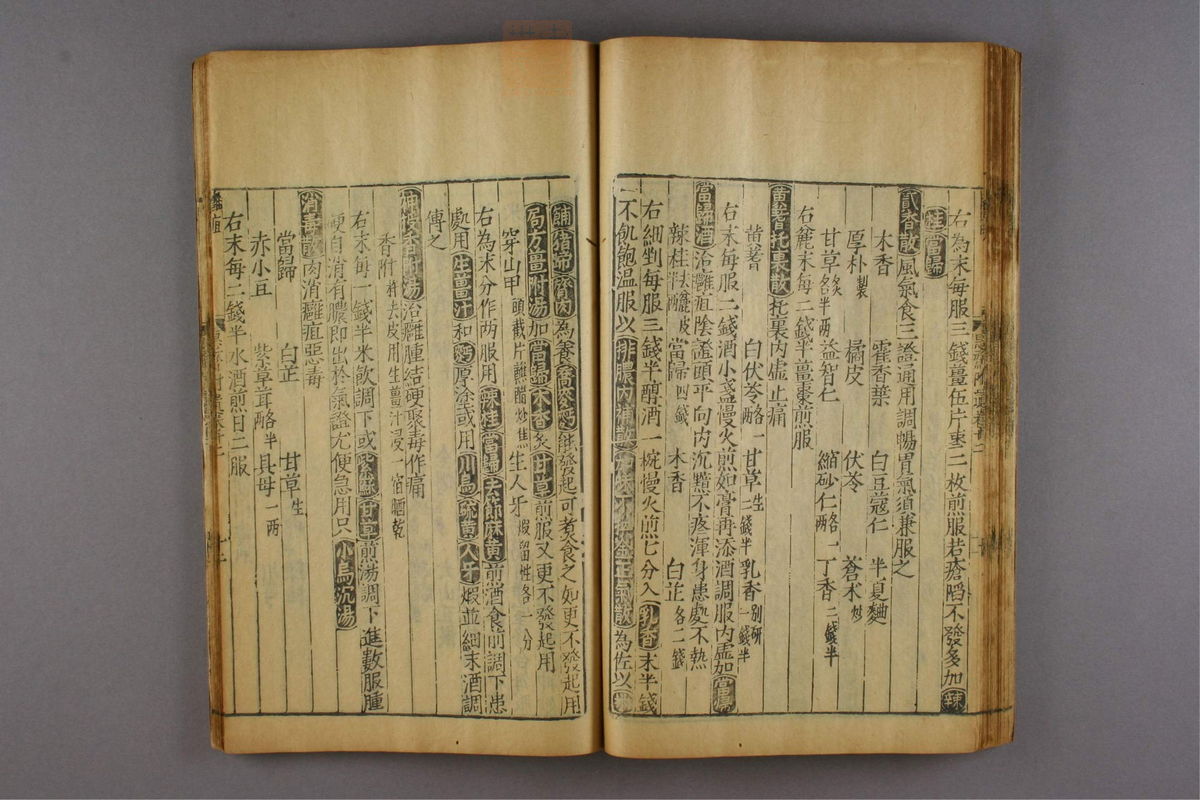 右為末每服三錢薑伍片棗二枚煎服若瘡陷不發多加辣
桂當歸
貳香散風氣食三證通用調暢胃氣須兼服之
木香 藿香葉 白豆蔻仁 半夏麯
厚朴製 橘皮 伏苓 蒼朮炒
甘草炙各半兩 益智仁 縮砂仁各一兩 丁香二錢半
右麄末每二錢半薑棗煎服
黃耆托裏散托裏內虛止痛
黃耆 白伏苓各一兩 甘草生二錢半 乳香別研一錢半
右末每服二錢酒小盞慢火煎如膏再添酒調服內虛如當歸
當歸酒治癰疽陰證頭平向內沉黯不疼渾身患處不熱
辣桂去麄皮半兩 當歸四錢 木香 白芷各二錢
右細剉每服三錢半醇酒一椀慢火煎七分入乳香末半錢
不飢飽溫服以排膿內補散加味不換金正氣散為佐以
鯽猪蹄膂肉為養蕎麥麪能發起可煮食之如更不發起用
局方薑附湯加當歸木香炙甘草煎服又更不發起用
穿山甲頭截片蘸醋炒焦 生人牙煅留性各一分
右為末分作两服用辣桂當歸去節麻黃煎酒食前調下患
處用生薑汁和麪厚塗或用川烏硫黃人牙煅並細末酒調
傅之
神授香附湯治癰腫結硬聚毒作痛
香附雜去皮用生薑汁浸一宿晒乾
右末每一錢半米飲調下或紫蘇甘草煎湯調下進數服腫
硬自消有膿即出於氣證尤便急用只小烏沉湯
消毒散內消癰疽惡毒
當歸 白芷 甘草生
赤小豆 紫草茸各半兩 貝母一兩
右末每二錢半水酒煎日二服